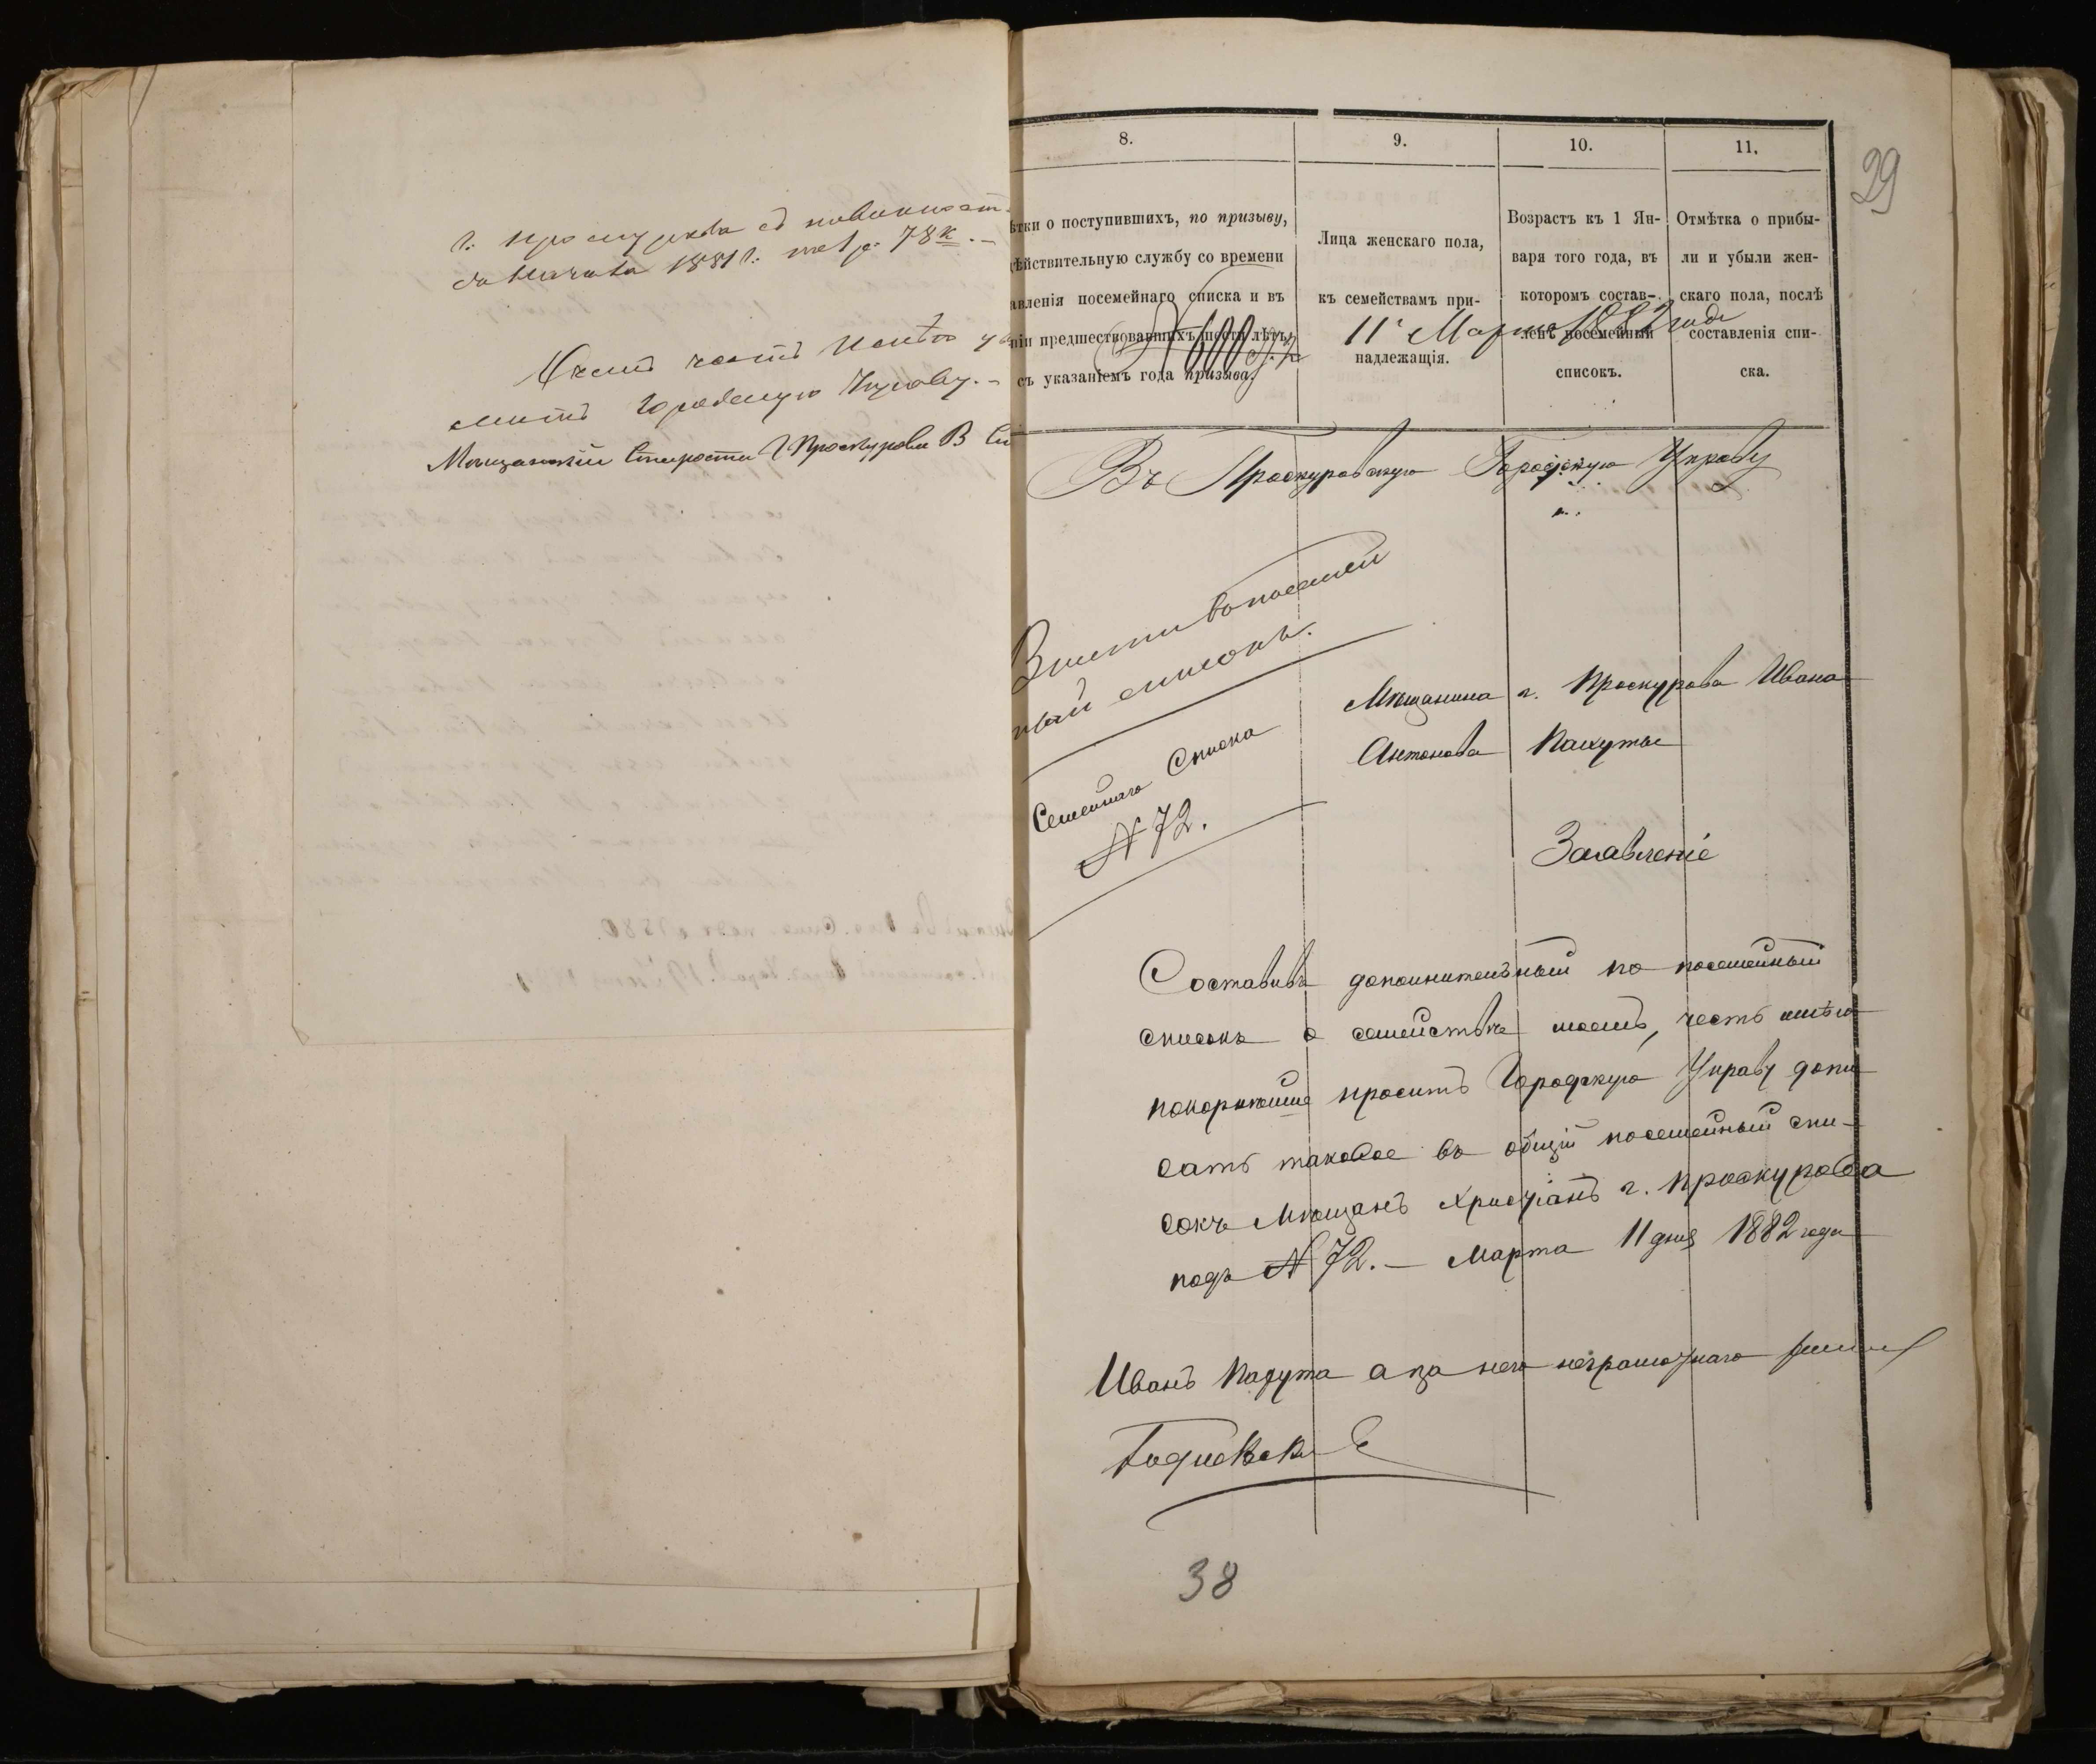 г. Проскурова
за 1881 г. 78 к. –
О чемъ честь имѣю
Городскую Управу. –
Мѣщанскій Староста г. Проскурова В
8.
9.
10.
11.
ѣтки о поступившихъ, по призыву,
дѣйствительную службу со времени
авленія посемейнаго списка и въ
ніи предшествовавшихъ шести лѣтъ,
съ указаніемъ года призыва.
Лица женскаго пола,
къ семействамъ при-
надлежащія.
Возрастъ къ 1 Ян-
варя того года, въ
которомъ состав-
ленъ посемейный
списокъ.
Отмѣтка о прибы-
ли и убыли жен-
скаго пола, послѣ
составленія спи-
ска.
29
№ 600
11 Марта 1882 года
Въ Проскуровскую Городскую Управу
Внести въ посемей
ный списокъ.
Семейнаго Списка
№ 72.
Мѣщанина г. Проскурова Ивана
Антонова
Заявленіе
Составивъ дополнительный по посемейный
списокъ о семействѣ моемъ, честь имѣю
покорнѣйше просить Городскую Управу допи
сать таковое въ общій посемейный спи-
сокъ Мѣщанъ Христіанъ г. Проскурова
подъ № 72. – Марта 11 дня 1882 года
Иванъ а за него неграмотнаго
38